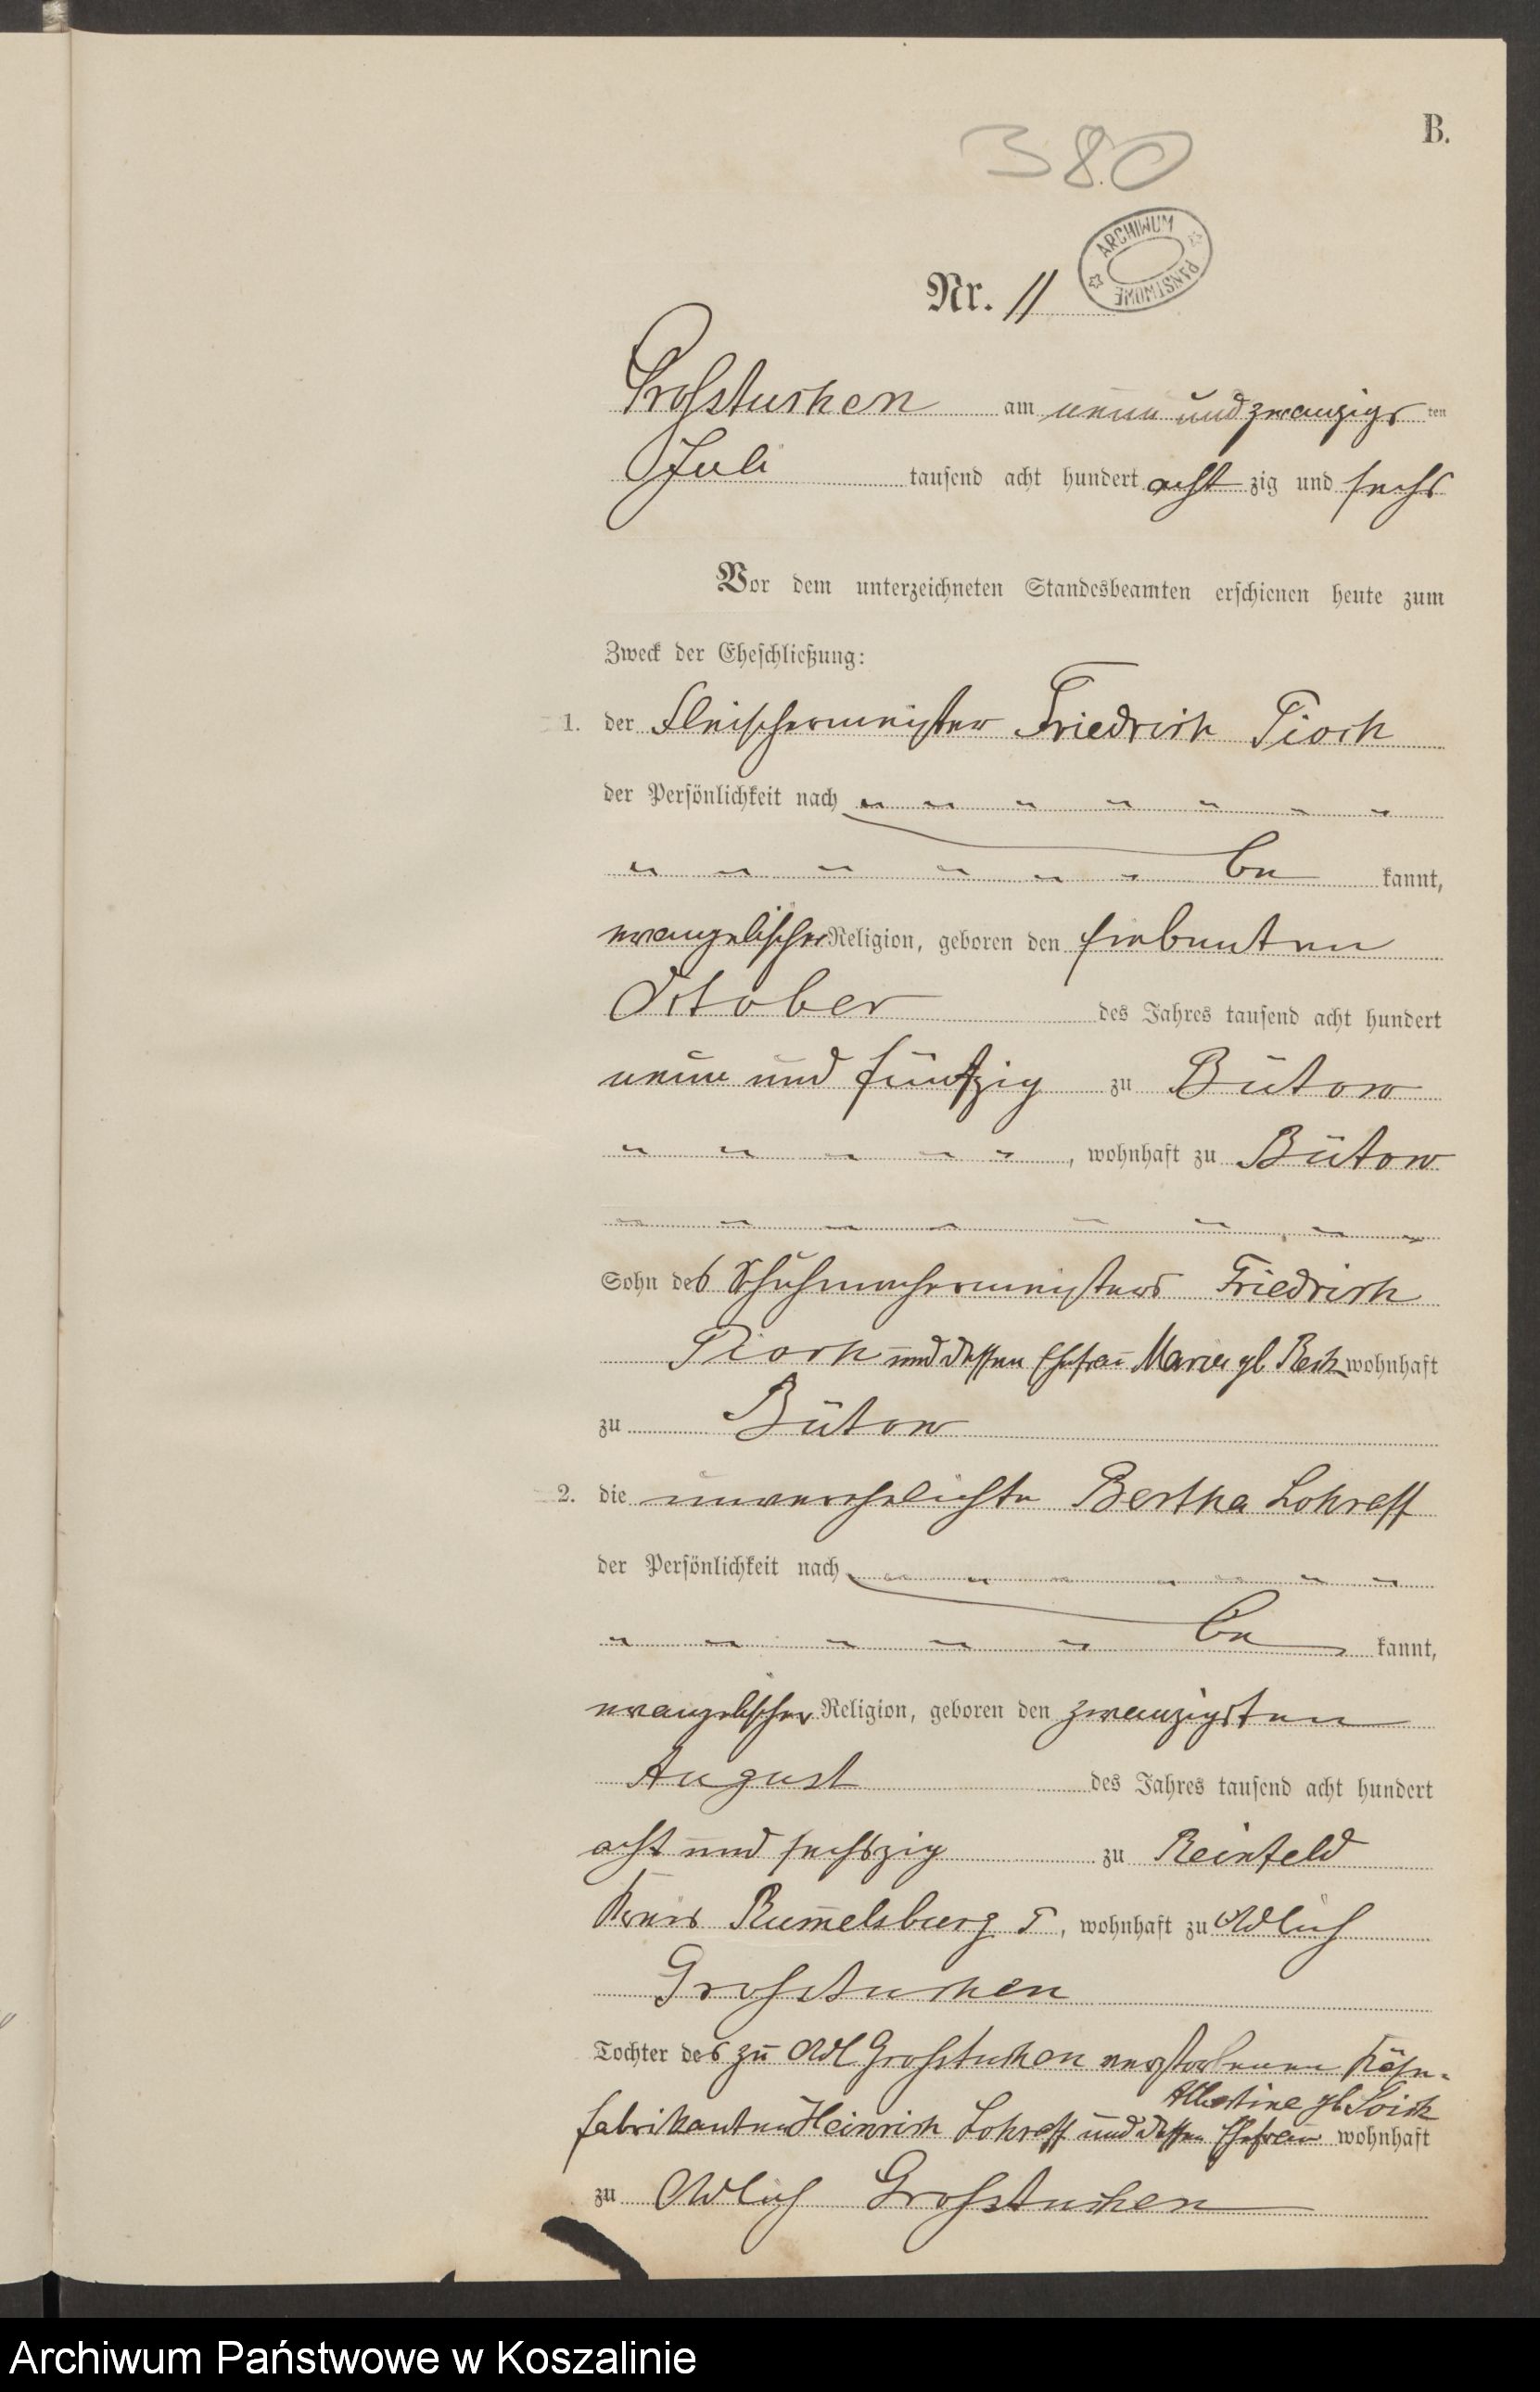 B.
380
ARCHIWUM PAŃSTWOWE
Nr. 11
Grosstuchen am neun und zwanzigs ten
Juli tausend acht hundert acht zig und sechs
Vor dem unterzeichneten Standesbeamten erschienen heute zum
Zweck der Eheschließung:
1. der Fleischermeister Friedrich Pioch
der Persönlichkeit nach
be kannt,
evangelischer Religion, geboren den siebenten
October des Jahres tausend acht hundert
neun und fünfzig zu Bütow
, wohnhaft zu Bütow
Sohn des Schuhmachermeisters Friedrich
Pioch und dessen Ehefrau Marie gb wohnhaft
zu Bütow
2. die unverehelichte Bertha Lohreff
der Persönlichkeit nach
be kannt,
evangelischer Religion, geboren den zwanzigsten
August des Jahres tausend acht hundert
acht und sechszig zu Reinfeld
Kreis Rummelsburg, wohnhaft zu Adlich
Grosstuchen
Tochter des zu Adl Grosstuchen verstorbenen Käse-
Albertine gb
fabrikanten Heinrich Lohreff und dessen Ehefrau wohnhaft
zu Adlich Grosstuchen
Archiwum Państwowe w Koszalinie